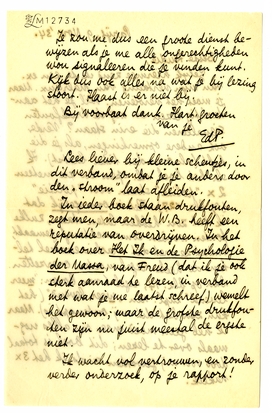 M12734
Je zou me dus een groote dienst be-
wijzen als je me alle ongerechtigheden
wou signalleren die je vinden kunt.
Kijk dus ook alles na wat je bij lezing
stoort. Haast is er niet bij.
Bij voorbaat dank. Hart. groeten
van je
EdP.
Lees liever bij kleine scheutjes, in
dit verband, omdat je je anders door
den "stroom" laat afleiden.
In ieder boek staan drukfouten,
zegt men, maar de W.B. heeft een
reputatie van overdrijven. In het
boek over Het Ik en de Psychologie
der Massa, van Freud (dat ik je ook
sterk aanraad te lezen, in verband
met wat je me laatst schreef) wemelt
het gewoon; maar de grofste drukfou-
ten zijn nu juist meestal de ergste
niet.
Ik wacht vol vertrouwen, en zonder
verder onderzoek, op je rapport!